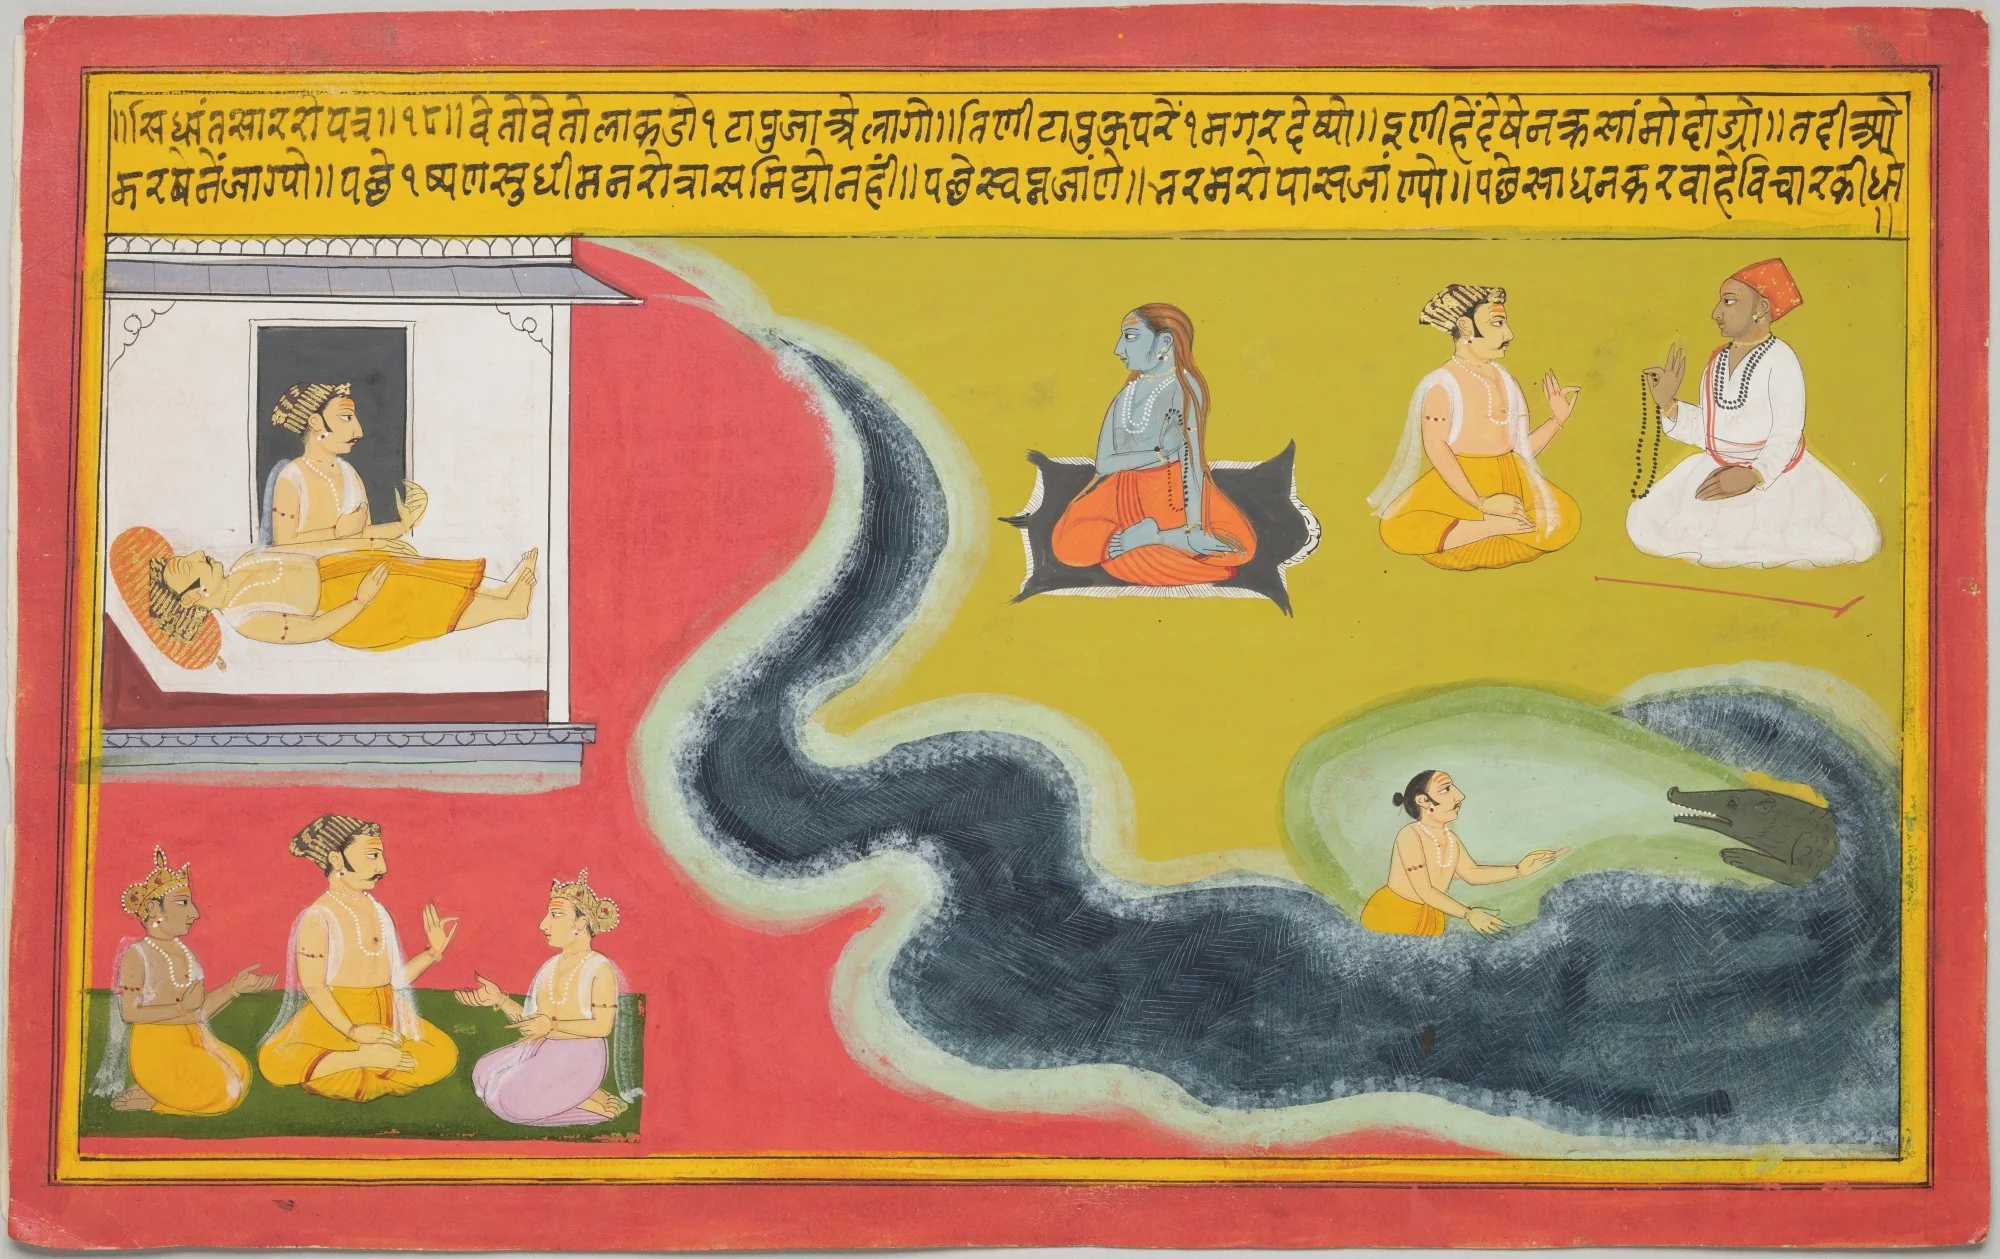 ॥सिध्धांतसाररो पत्र॥१८॥वेतोवेतोलाकडो१टापुजाश्रेलागो॥तिणीटापुऊपरें१मगरदेष्यो॥इणीहेंदेषेनकसांमोदोड्यो॥तदीओ
मरषेनेंजाग्यो॥पछे१ष्यणसुधीमनरोत्रासमिट्योनहीं॥पछेस्वप्नजांणे॥नरमरोपासजांण्यो॥पछेसाधनकरवाहेविचारकीधो
॥